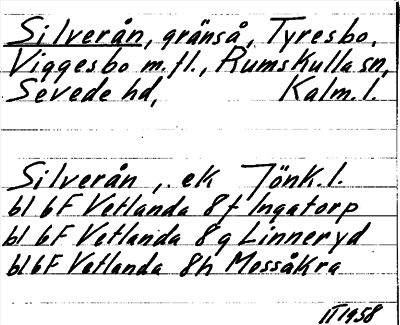 Silverån, gränså, Tyresbo,
Viggesbo m.fl., Rumskulla sn,
Sevede hd, Kalm.l.
Silverån, ek Jönk.l.
bl 6F Vetlanda 8f Ingatorp
bl 6F Vetlanda 8g Linneryd
bl 6F Vetlanda 8h Mossåkra
II 1958